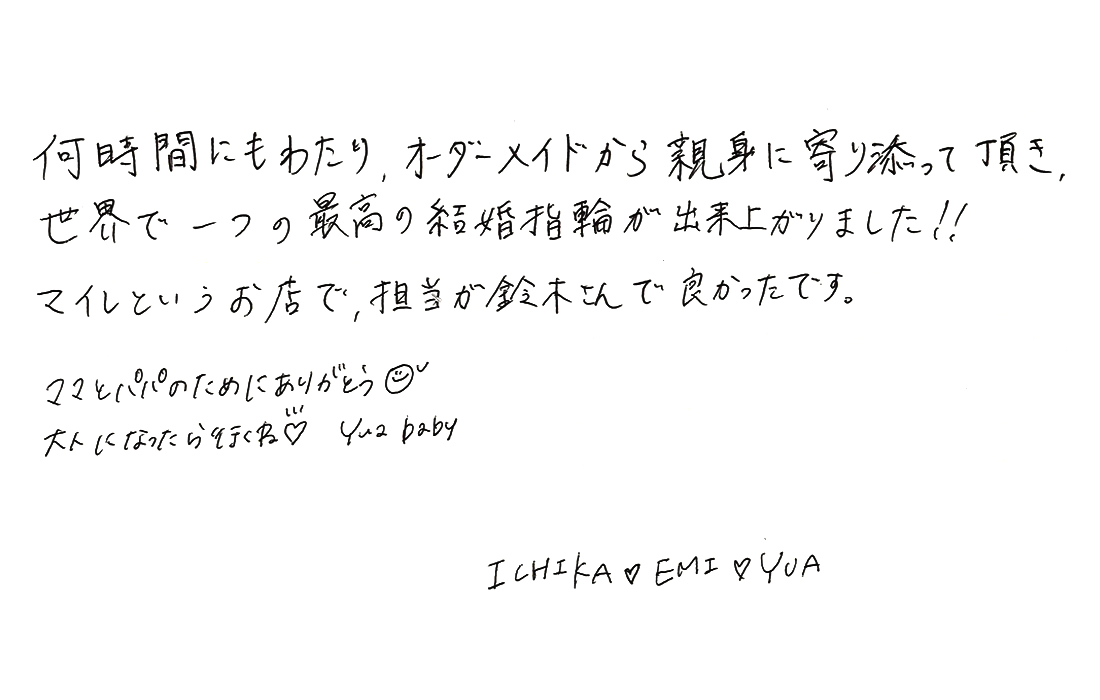 何時間にもわたり、オーダーメイドから親身に寄り添って頂き、
世界で一つの最高の結婚指輪が出来上がりました!!
マイレというお店で、担当が鈴木さんで良かったです。
ママとパパのためにありがとう
大人になったら行くね♡ Yua baby
ICHIKA♡EMI♡YUA